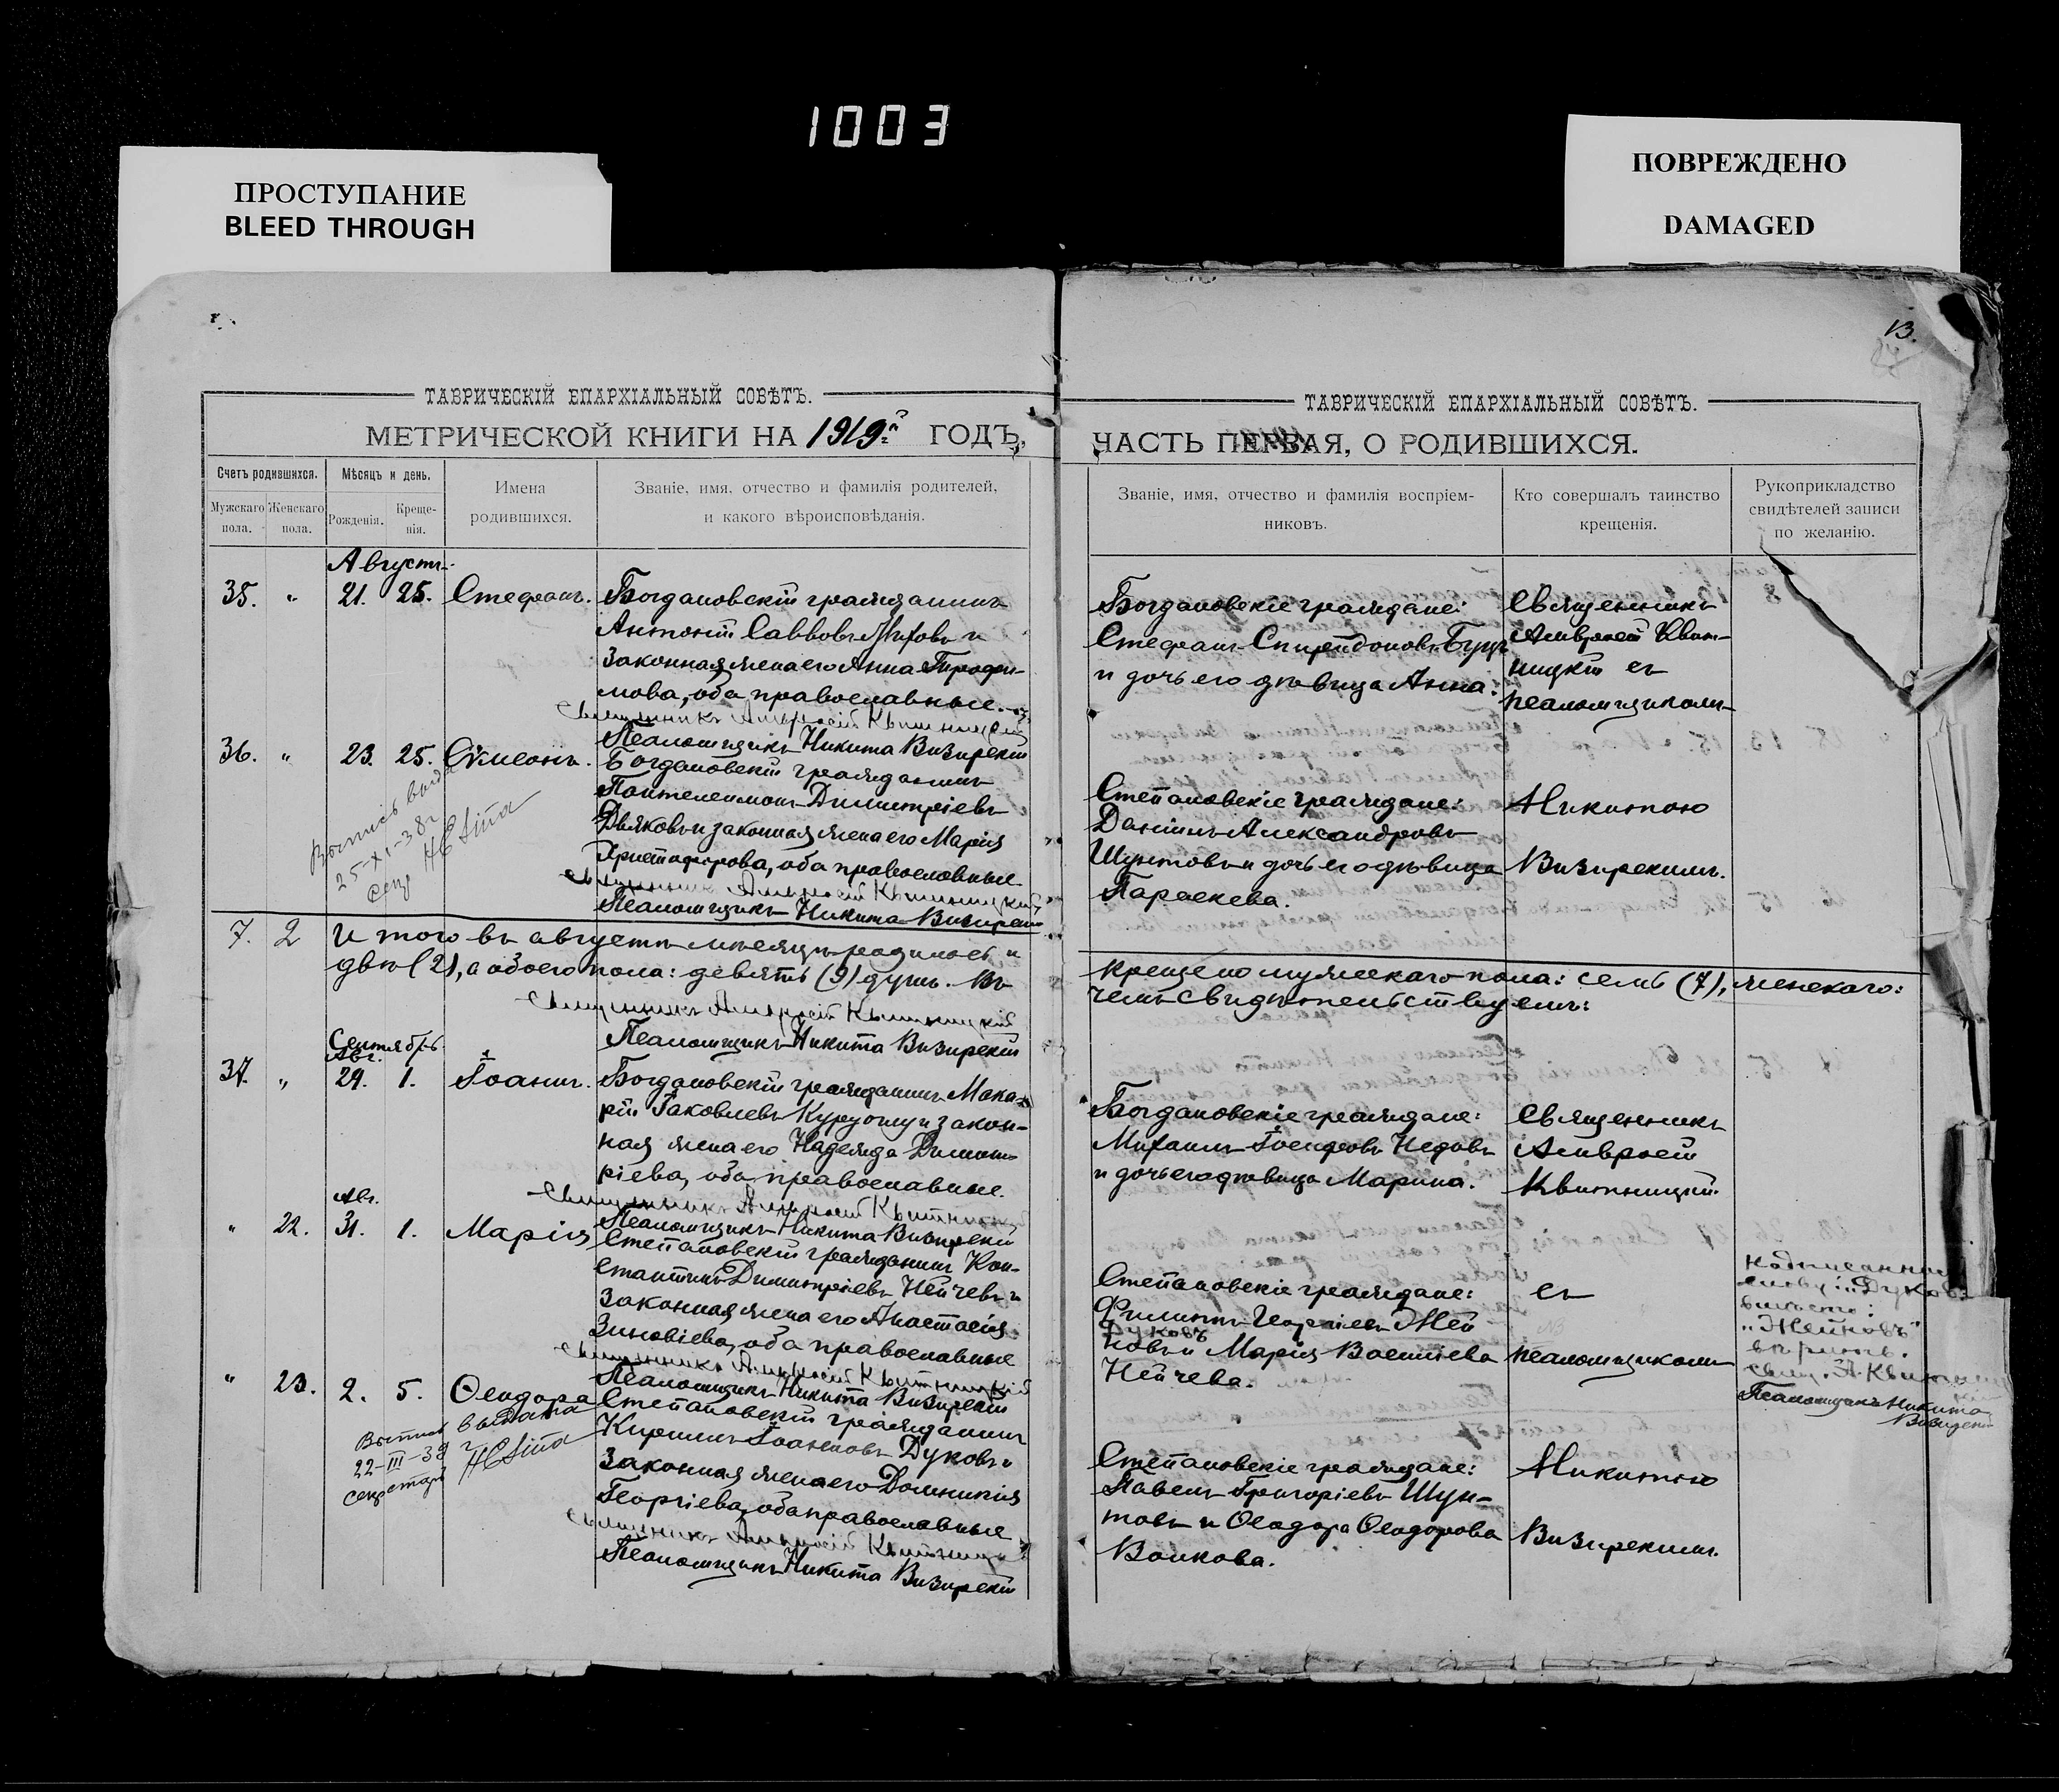 1003
ПРОСТУПАНИЕ
BLEED THROUGH
ПОВРЕЖДЕНО
DAMAGED
13.
ТАВРИЧЕСКІЙ ЕПАРХІАЛЬНЫЙ СОВѢТЪ.
МЕТРИЧЕСКОЙ КНИГИ НА 1919й ГОДЪ,
Счетъ родившихся.
Мужскаго пола.
Женскаго пола.
Мѣсяцъ и день.
Рожденія.
Крещенія.
Имена
родившихся.
Званіе, имя, отчество и фамилія родителей,
и какого вѣроисповѣданія.
Августъ
35. " 21. 25. Стефанъ. Богдановскій гражданинъ
Антоній Саввовъ и
законная жена его Анна Трофи-
мова, оба православные.
Священникъ Амвросій Квитницкій
Псаломщикъ Никита Визирскій
36. " 23. 25. Сѵмеонъ. Богдановскій гражданинъ
Пантелеимонъ Димитріевъ
Дьяковъ и законная жена его Марія
Христофорова, оба православные
Священникъ Амвросій Квитницкій
Псаломщикъ Никита Визирскій
Выпись выда
25-XI-38 г
секр
7. 2 Итого въ августѣ мѣсяцѣ родилось и
двѣ (2), а обоего пола: девять (9) душъ. Въ
Священникъ Амвросій Квитницкій
Псаломщикъ Никита Визирскій
Сентябрь
Авг.
37. " 29. 1. Іоаннъ. Богдановскій гражданинъ Мака-
рій Іаковлевъ Курдогму и закон-
ная жена его Надежда Димит-
ріева, оба православные.
Священникъ Амвросій Квитницкій
Псаломщикъ Никита Визирскій
Авг.
" 22. 31. 1. Марія Степановскій гражданинъ Кон-
стантинъ Димитріевъ Нейчевъ и
законная жена его Анастасія
Зиновіева, оба православные
Священникъ Амвросій Квитницкій
Псаломщикъ Никита Визирскій
" 23. 2. 5. Ѳеодора Степановскій гражданинъ
Кириллъ Іоанновъ Дуковъ и
законная жена его Домникія
Георгіева, оба православные
Священникъ Амвросій Квитницкій
Псаломщикъ Никита Визирскій
Выпись выдана
22-III-39 г
секретарь
ТАВРИЧЕСКІЙ ЕПАРХІАЛЬНЫЙ СОВѢТЪ.
ЧАСТЬ ПЕРВАЯ, О РОДИВШИХСЯ.
Званіе, имя, отчество и фамилія воспріем-
никовъ.
Кто совершалъ таинство
крещенія.
Рукоприкладство
свидѣтелей записи
по желанію.
Богдановскіе граждане:
Стефанъ Спиридоновъ
и дочь его дѣвица Анна.
Священникъ
Амвросій Квит-
ницкій съ
псаломщикомъ
Степановскіе граждане:
Даніилъ Александровъ
Шунтовъ и дочь его дѣвица
Параскева.
Никитою
Визирскимъ.
крещено мужскаго пола: семь (7), женскаго:
чемъ свидѣтельствуемъ:
Богдановскіе граждане:
Михаилъ Іосифовъ Недовъ
и дочь его дѣвица Марина.
Священникъ
Амвросій
Квитницкій
Степановскіе граждане:
Филиппъ Георгіевъ Жей
Дуковъ
новъ и Марія Васильева
Нейчева.
съ
псаломщикомъ
Надписанное
слову: "Дуковъ"
вмѣсто:
"Жейновъ"
вѣрить.
свящ. А. Квитницкій
Псаломщикъ Никита
Визирскій
Степановскіе граждане:
Павелъ Григоріевъ Шун-
товъ и Ѳеодора Ѳеодорова
Волкова.
Никитою
Визирскимъ.